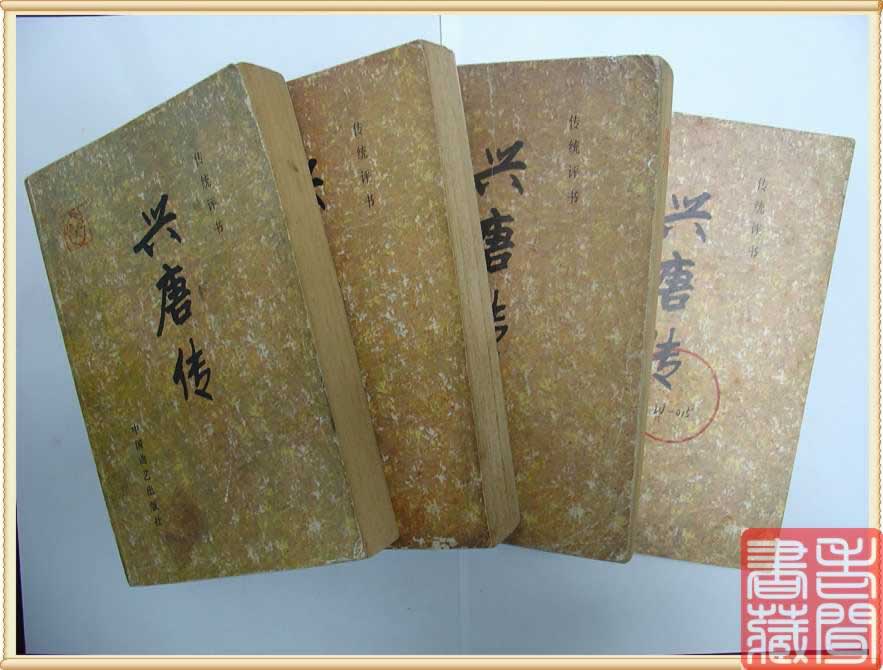 传统评书
兴唐传
中国曲艺出版社
传统评书
兴
传统评书
兴唐传
传统评书
兴唐传
W-015
書藏